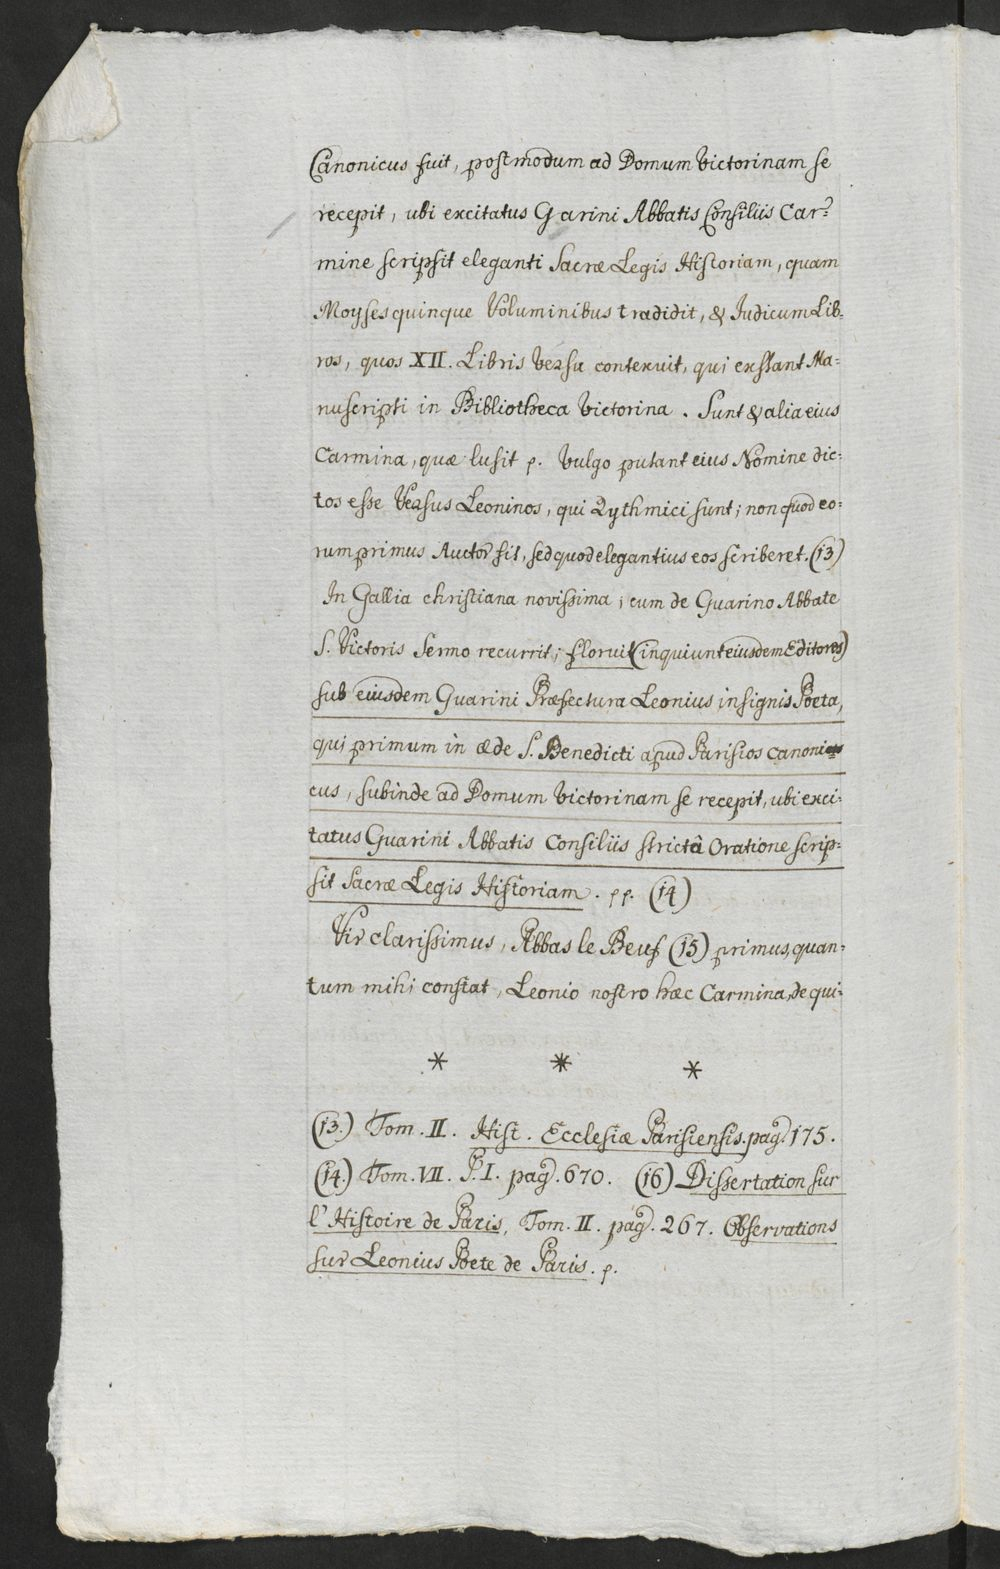 Canonicus fuit, postmodum ad Domum Victorinam se
recepit, ubi excitatus Garini Abbatis Consiliis Car=
mine scripsit eleganti Sacræ Legis Historiam, quam
Moyses quinque Voluminibus tradidit, & Iudicum Lib=
ros, quos XII. Libris versu contexuit, qui exstant Ma=
nuscripti in Bibliotheca Victorina. Sunt & alia eius
Carmina, quæ lusit p. Vulgo putant eius Nomine dic=
tos esse Versus Leoninos, qui Rythmici sunt; non quod eo=
rum primus Auctor sit, sed quod elegantius eos scriberet. (13)
In Gallia christiana novissima, cum de Guarino Abbate
S. Victoris Sermo recurrit; floruit (inquiunt eiusdem Editores)
sub eiusdem Guarini Præfectura Leonius insignis Poeta,
qui primum in æde S. Benedicti apud Parisios canoni
cus, subinde ad Domum Victorinam se recepit, ubi exci=
tatus Guarini Abbatis Consiliis strictâ Oratione scrip=
sit Sacræ Legis Historiam. pp. (14)
Vir clarissimus, Abbas le Beuf (15) primus, quan=
tum mihi constat, Leonio nostro hæc Carmina, de qui=
* * *
(13.) Tom. II. Hist. Ecclesiæ Parisiensis. pag. 175.
(14.) Tom. VII. P. I. pag. 670. (16) Dissertation sur
l'Histoire de Paris, Tom. II. pag. 267. Observations
sur Leonius Poete de Paris. p.